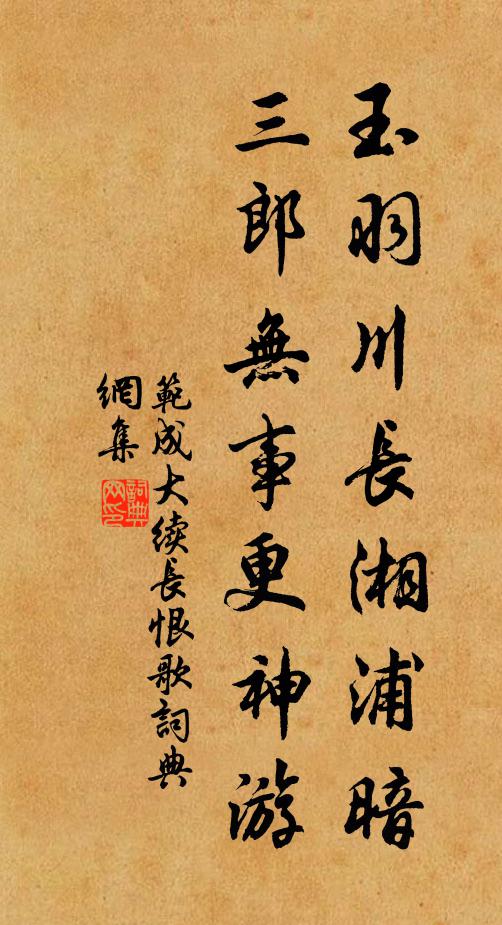 玉羽川長湘浦暗
三郎無事更神游
範成大续長恨歌詞典
網集
詞典
网印